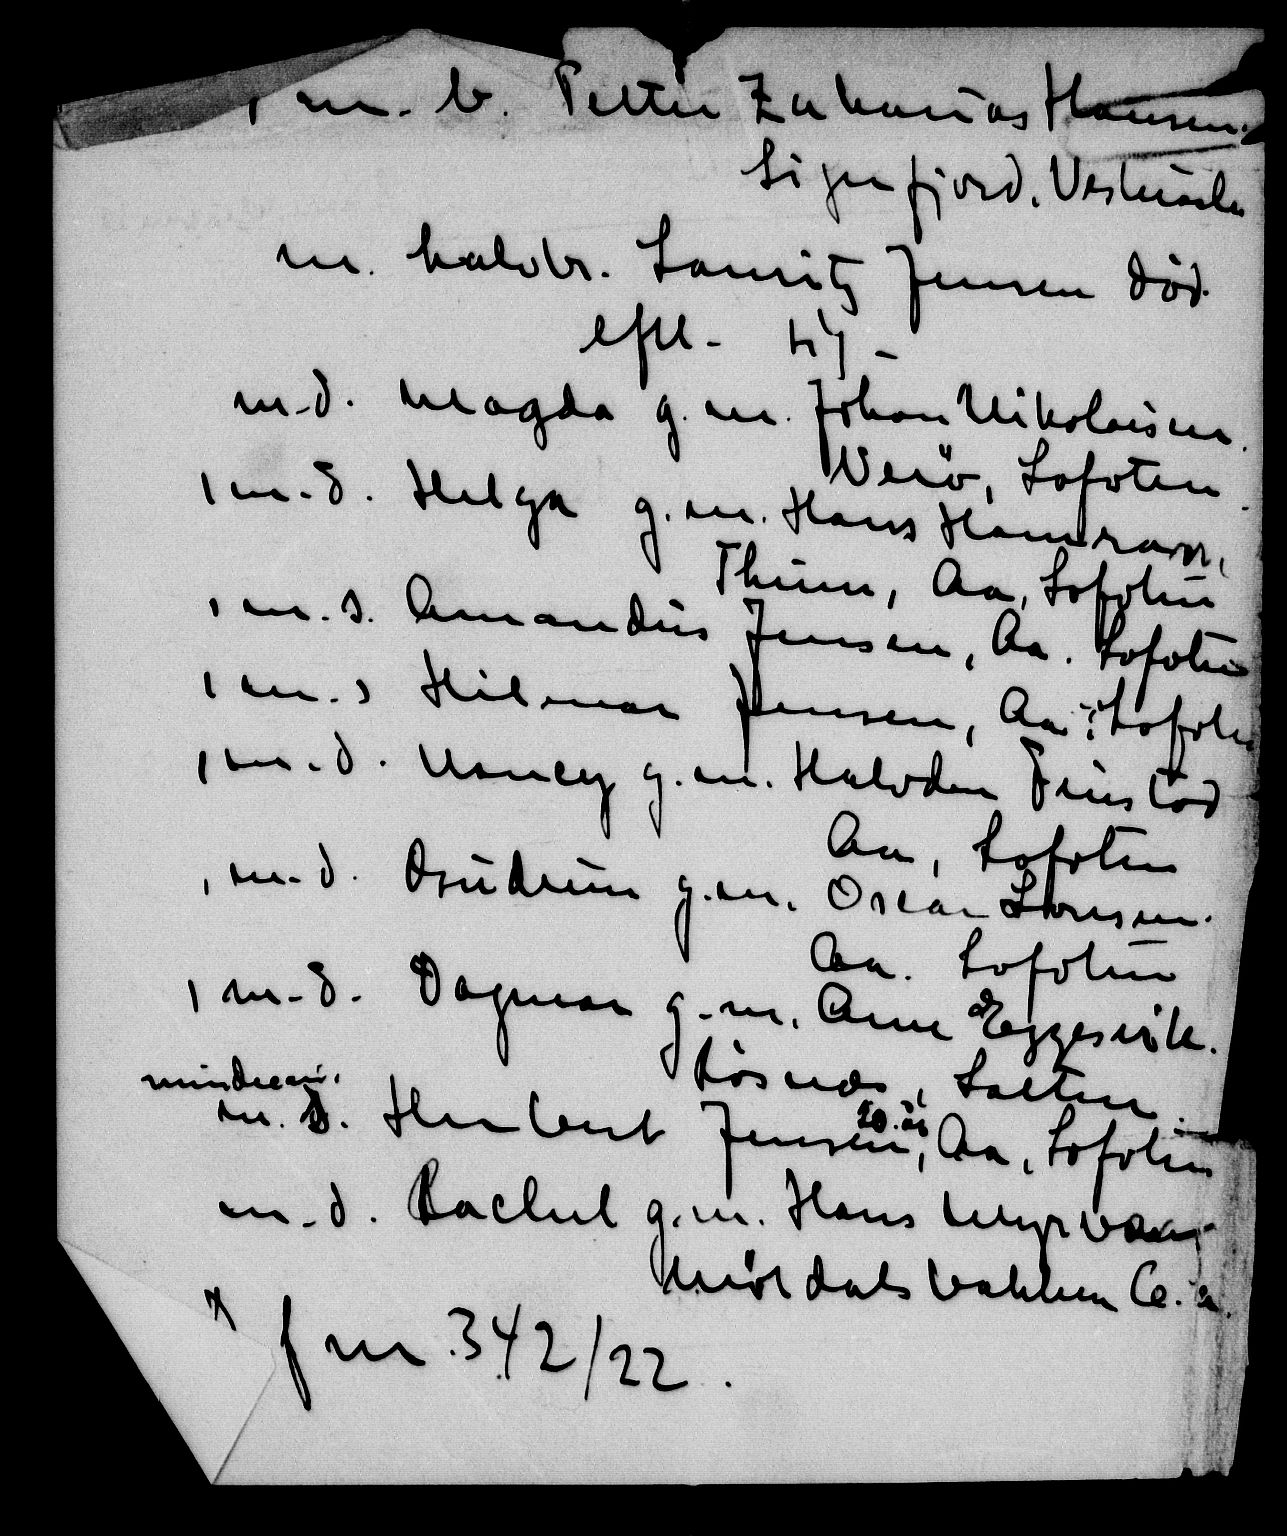 1 m. b. Petter Zakarias Hansen.
Sigerfjord, Vesteraalen
m. halvbr. Lauritz Jensen død.
eftl. sig -
m.d. Magda g.m. Johan Nikolaisen.
Værö, Lofoten
1 m.d. Helga g.m. Hans
Aa, Lofoten
1 m.s. Amandus Jensen, Aa. Lofoten
1 m.s Hilmar Jensen, Aa, Lofoten
1 m.d. Nancy g.m. Halvdan Finstad
Aa, Lofoten
1 m.d. Gudrun g.m. Oscar Larsen.
Aa. Lofoten
1 m.d. Dagmar g.m. Arne Eggesvik.
Rösnes, Salten.
mindreaari.
m. s. Herbert Jensen, 20.år Aa, Lofoten
m.d. Rachel g.m. Hans Myrvang
bakken
f m. 342/22.